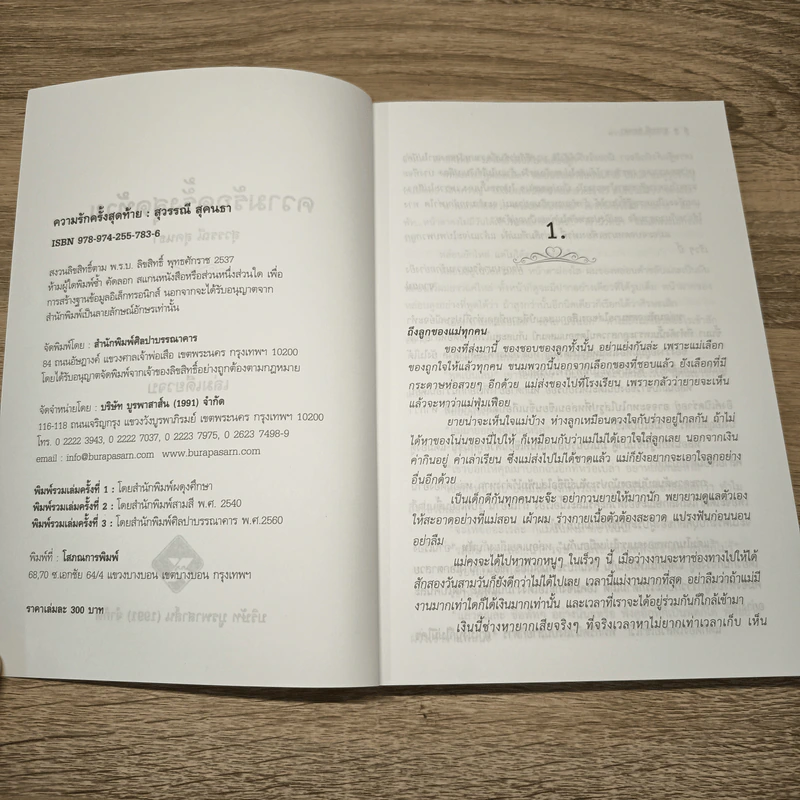 ความรักครั้งสุดท้าย : สุวรรณี สุคนธา
ISBN 978-974-255-783-6
สงวนลิขสิทธิ์ตาม พ.ร.บ. ลิขสิทธิ์ พุทธศักราช 2537
ห้ามผู้ใดพิมพ์ซ้ำ คัดลอก สแกนหนังสือหรือส่วนหนึ่งส่วนใด เพื่อ
การสร้างฐานข้อมูลอิเล็กทรอนิกส์ นอกจากจะได้รับอนุญาตจาก
สำนักพิมพ์เป็นลายลักษณ์อักษรเท่านั้น
จัดพิมพ์โดย : สำนักพิมพ์ศิลปาบรรณาคาร
84 ถนนอัษฎางค์ แขวงศาลเจ้าพ่อเสือ เขตพระนคร กรุงเทพฯ 10200
โดยได้รับอนุญาตจัดพิมพ์จากเจ้าของลิขสิทธิ์อย่างถูกต้องตามกฎหมาย
จัดจำหน่ายโดย : บริษัท บูรพาสาส์น (1991) จำกัด
116-118 ถนนเจริญกรุง แขวงวังบูรพาภิรมย์ เขตพระนคร กรุงเทพฯ 10200
โทร. 0 2222 3943, 0 2222 7037, 0 2223 7975, 0 2623 7498-9
email : info@burapasarn.com www.burapasarn.com
พิมพ์รวมเล่มครั้งที่ 1 : โดยสำนักพิมพ์ผดุงศึกษา
พิมพ์รวมเล่มครั้งที่ 2 : โดยสำนักพิมพ์สามสี พ.ศ. 2540
พิมพ์รวมเล่มครั้งที่ 3 : โดยสำนักพิมพ์ศิลปาบรรณาคาร พ.ศ.2560
พิมพ์ที่ : โสภณการพิมพ์
68,70 ซ.เอกชัย 64/4 แขวงบางบอน เขตบางบอน กรุงเทพฯ
ราคาเล่มละ 300 บาท
1.
ถึงลูกของแม่ทุกคน
ของที่ส่งมานี้ ของชอบของลูกทั้งนั้น อย่าแย่งกันล่ะ เพราะแม่เลือก
ของถูกใจให้แล้วทุกคน ขนมพวกนี้นอกจากเลือกของที่ชอบแล้ว ยังเลือกที่มี
กระดาษห่อสวยๆ อีกด้วย แม่ส่งของไปที่โรงเรียน เพราะกลัวว่ายายจะเห็น
แล้วจะหาว่าแม่ฟุ่มเฟือย
ยายน่าจะเห็นใจแม่บ้าง ห่างลูกเหมือนดวงใจกับร่างอยู่ไกลกัน ถ้าไม่
ได้หาของโน่นของนี่ไปให้ ก็เหมือนกับว่าแม่ไม่ได้เอาใจใส่ลูกเลย นอกจากเงิน
ค่ากินอยู่ ค่าเล่าเรียน ซึ่งแม่ส่งไปไม่ได้ขาดแล้ว แม่ก็ยังอยากจะเอาใจลูกอย่าง
อื่นอีกด้วย
เป็นเด็กดีกันทุกคนนะจ๊ะ อย่ากวนยายให้มากนัก พยายามดูแลตัวเอง
ให้สะอาดอย่างที่แม่สอน เผ้าผม ร่างกายเนื้อตัวต้องสะอาด แปรงฟันก่อนนอน
อย่าลืม
แม่คงจะได้ไปหาพวกหนูๆ ในเร็วๆ นี้ เมื่อว่างงานจะหาช่องทางไปให้ได้
สักสองวันสามวันก็ยังดีกว่าไม่ได้ไปเลย เวลานี้แม่งานมากที่สุด อย่าลืมว่าถ้าแม่มี
งานมากเท่าใดก็ได้เงินมากเท่านั้น และเวลาที่เราจะได้อยู่ร่วมกันก็ใกล้เข้ามา
เงินนี้ช่างหายากเสียจริงๆ ที่จริงเวลาหาไม่ยากเท่าเวลาเก็บ เห็น